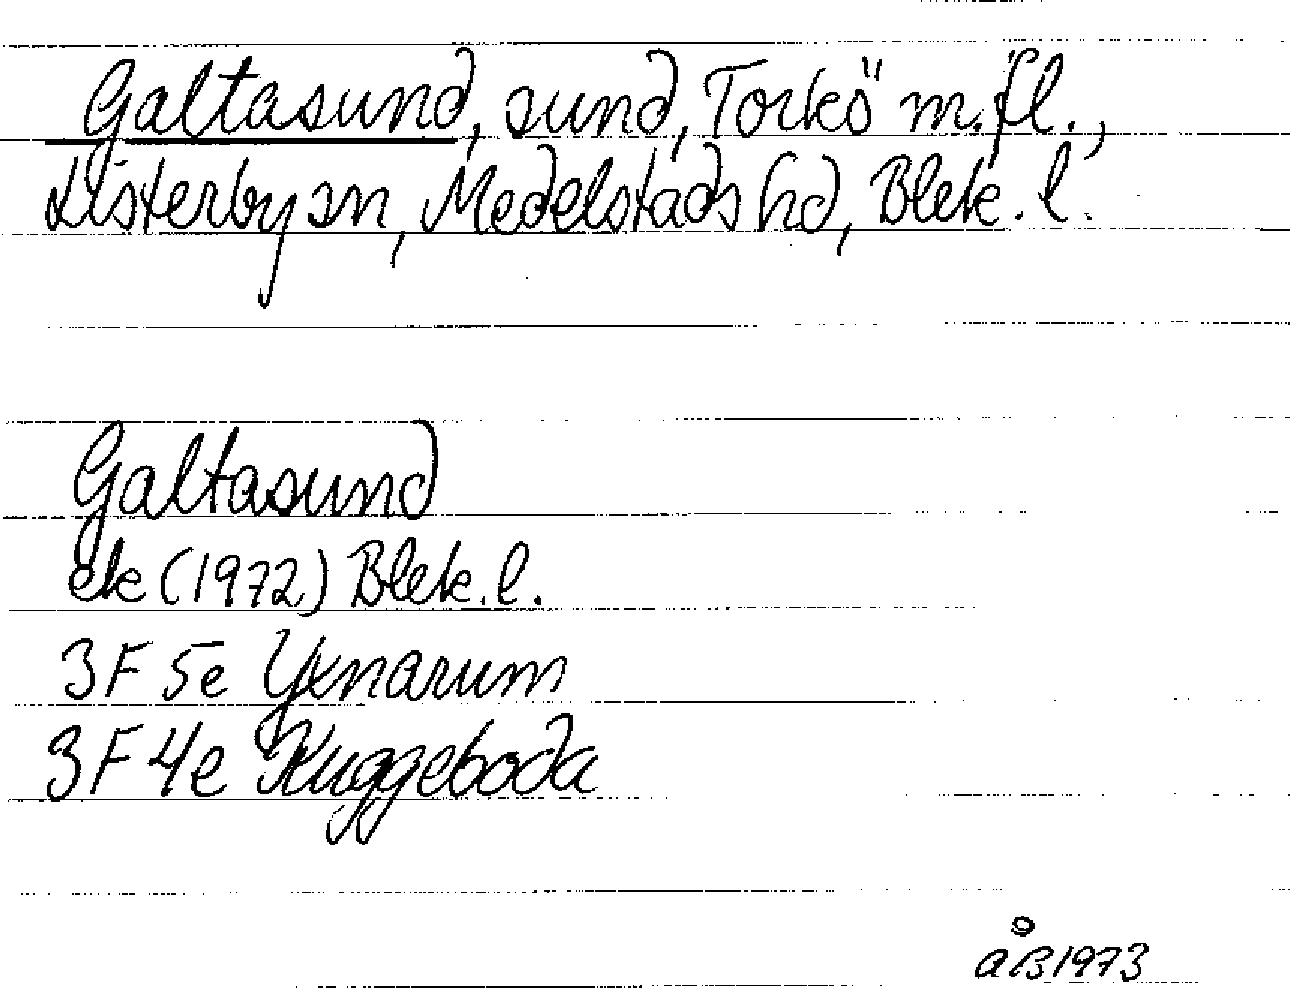 Galtasund, sund, Torkö m.fl.,
Listerby sn, Medelstads hd, Blek. l.
Galtasund
ek (1972) Blek. l.
3F 5e Yxnarum
3F 4e Kuggeboda
ÅB 1973